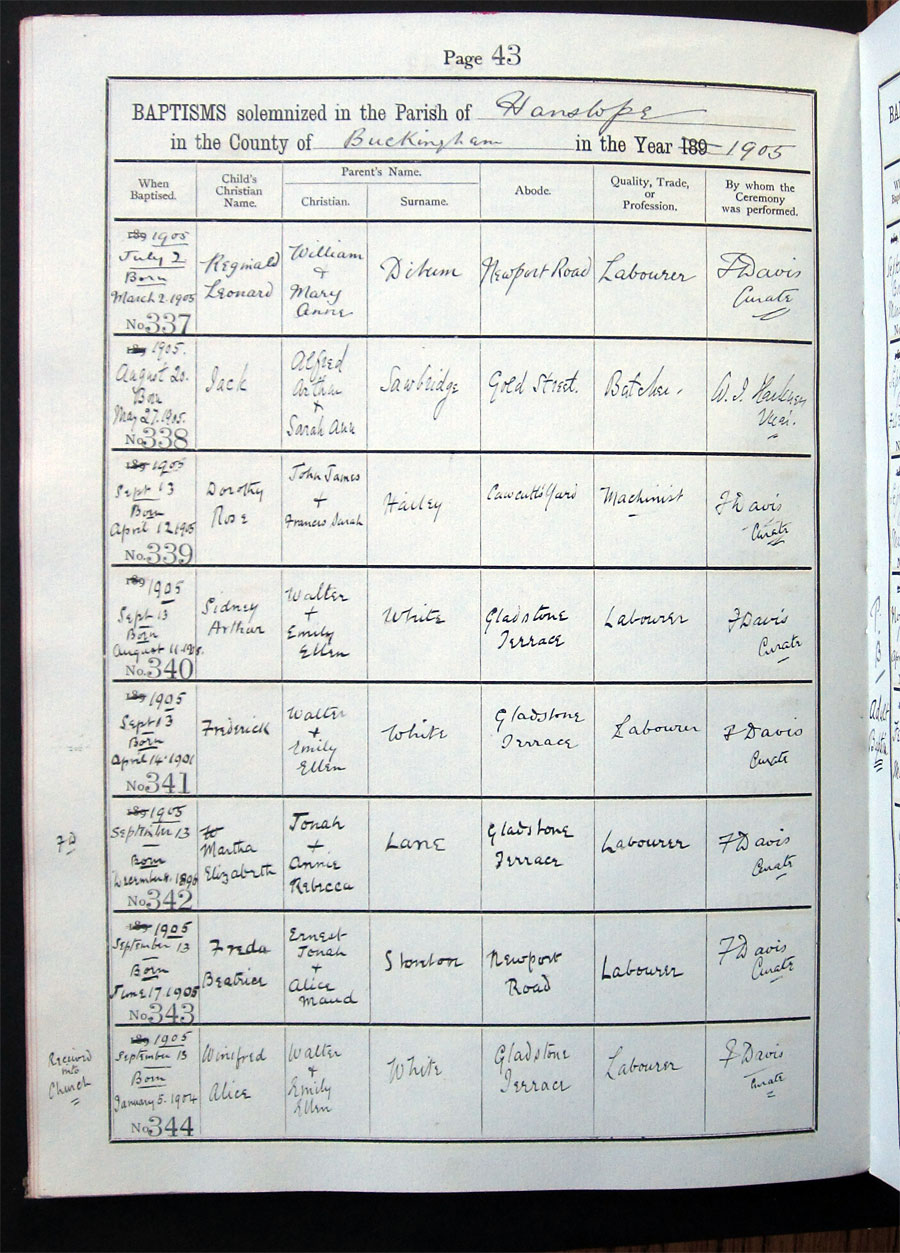 Page 43
BAPTISMS solemnized in the Parish of Hanslope
in the County of Buckingham in the Year 189 1905
When Baptised.
Child's Christian Name.
Parent's Name.
Christian.
Surname.
Abode.
Quality, Trade, or Profession.
By whom the Ceremony was performed.
189 1905
July 2
Born
March 2. 1905
No. 337
Reginald
Leonard
William
+
Mary
Annie
Newport Road
Labourer
F Davis
Curate
189 1905.
August 20.
Born
May 27. 1905.
No. 338
Jack
Alfred
Arthur
+
Sarah Ann
Sawbridge
Gold Street.
Butcher.
Vicar.
189 1905
Sept 13
Born
April 12 1905
No. 339
Dorothy
Rose
John James
+
Frances Sarah
Hailey
Machinist
F Davis
Curate
189 1905
Sept 13
Born
August 11. 1905.
No. 340
Sidney
Arthur
Walter
+
Emily
Ellen
White
Gladstone
Terrace
Labourer
F Davis
Curate
189 1905
Sept 13
Born
April 14. 1901
No. 341
Frederick
Walter
+
Emily
Ellen
White
Gladstone
Terrace
Labourer
F Davis
Curate
FD
189 1905
September 13
Born
No. 342
Martha
Elizabeth
Jonah
+
Annie
Rebecca
Lane
Gladstone
Terrace
Labourer
F Davis
Curate
189 1905
September 13
Born
June 17 1905
No. 343
Freda
Beatrice
Ernest
Jonah
+
Alice
Maud
Newport
Road
Labourer
F Davis
Curate
Received
into
Church
189 1905
September 13
Born
January 5. 1904
No. 344
Winifred
Alice
Walter
+
Emily
Ellen
White
Gladstone
Terrace
Labourer
F Davis
Curate